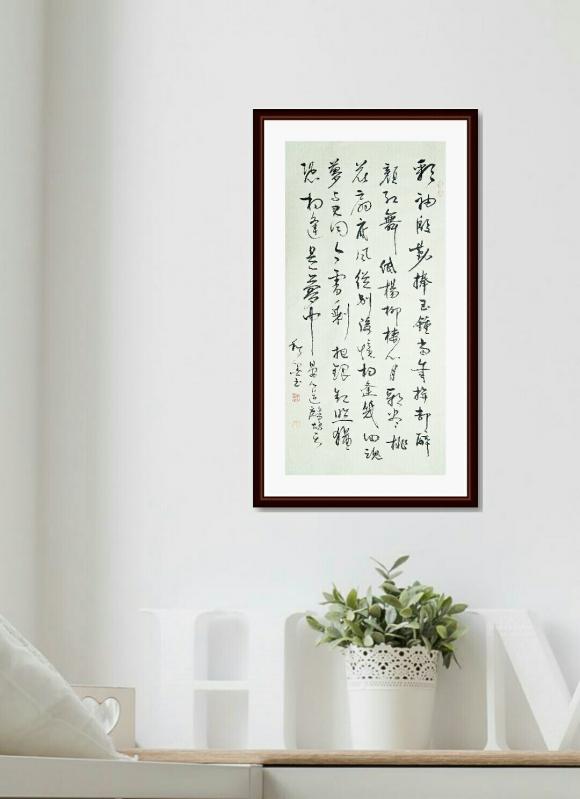 彩袖殷勤捧玉鍾當年拚却醉
顏紅舞低楊柳樓心月歌盡桃
花扇底風從別後憶相逢幾回魂
夢與君同今宵剩把銀釭照猶
恐相逢是夢中
晏幾道鷓鴣天
HOM